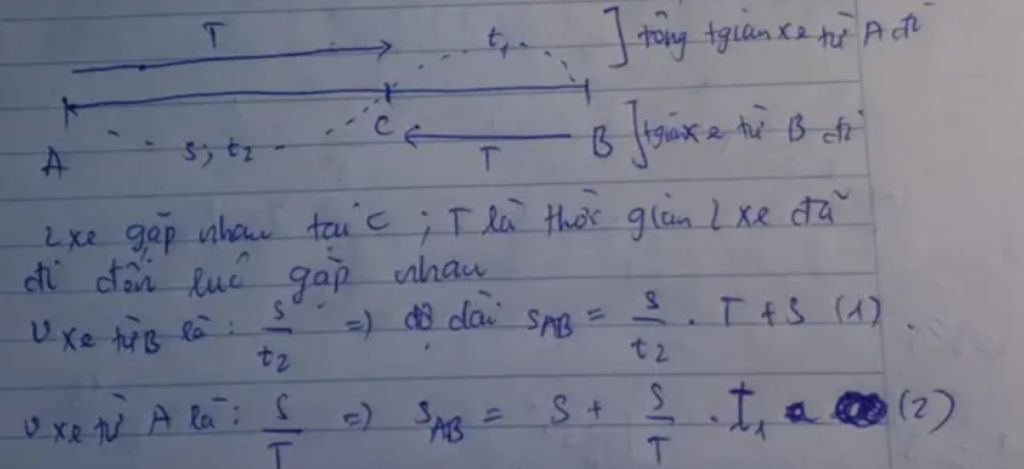 T t₁ ] tổng tgian xe từ A đi
A s; t₂ C T B ] tgian xe từ B đi
2 xe gặp nhau tại C ; T là thời gian 2 xe đã
đi đến lúc gặp nhau
v xe từ B là : s/t₂ => độ dài S_AB = s/t₂ . T + S (1)
v xe từ A là : S/T => S_AB = S + S/T . t₁ (2)